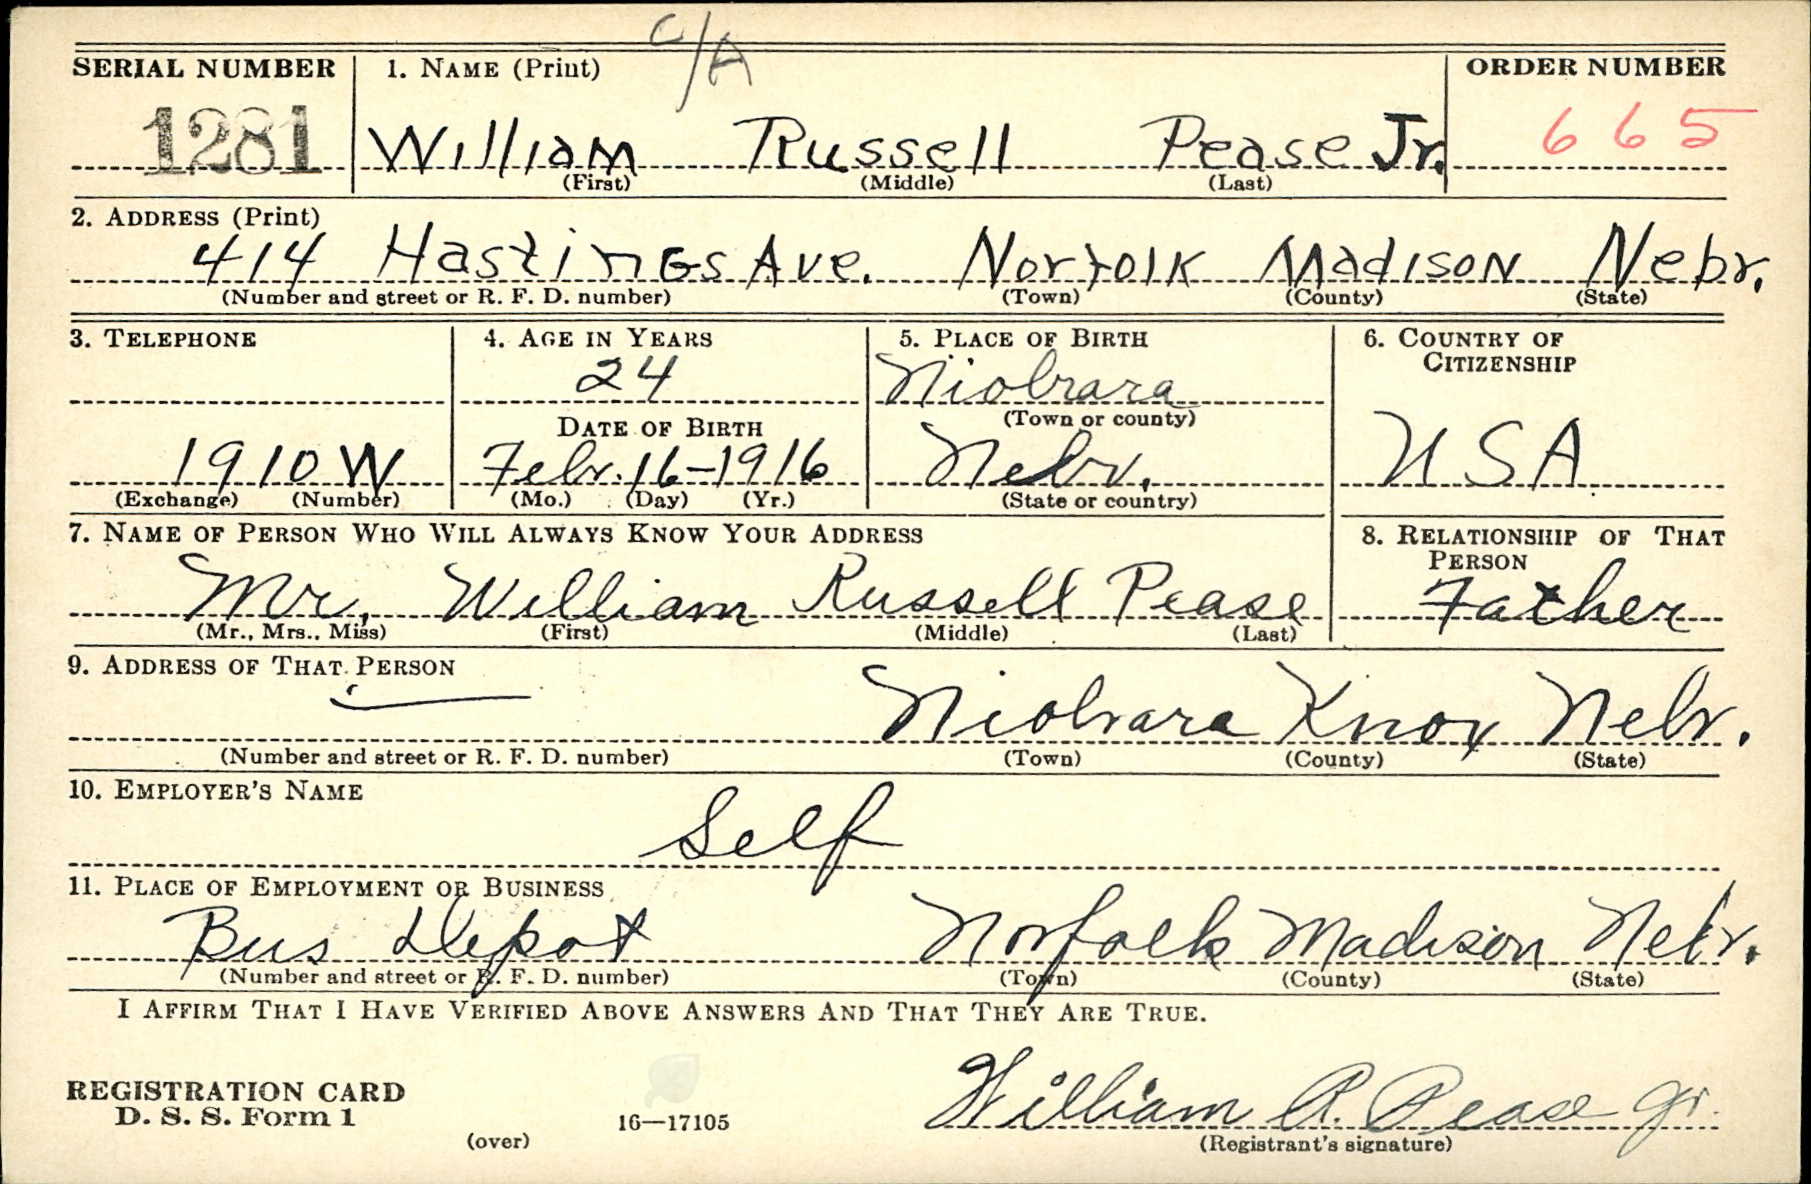 C/A
SERIAL NUMBER 1. NAME (Print) ORDER NUMBER
1281 William Russell Pease Jr. 665
(First) (Middle) (Last)
2. ADDRESS (Print)
414 Hastings Ave. Norfolk Madison Nebr.
(Number and street or R. F. D. number) (Town) (County) (State)
3. TELEPHONE 4. AGE IN YEARS 5. PLACE OF BIRTH 6. COUNTRY OF CITIZENSHIP
24 Niobrara
DATE OF BIRTH (Town or county)
1910 W Febr. 16-1916 Nebr. USA
(Exchange) (Number) (Mo.) (Day) (Yr.) (State or country)
7. NAME OF PERSON WHO WILL ALWAYS KNOW YOUR ADDRESS 8. RELATIONSHIP OF THAT PERSON
Mr. William Russell Pease Father
(Mr., Mrs., Miss) (First) (Middle) (Last)
9. ADDRESS OF THAT PERSON
Niobrara Knox Nebr.
(Number and street or R. F. D. number) (Town) (County) (State)
10. EMPLOYER'S NAME
Self
11. PLACE OF EMPLOYMENT OR BUSINESS
Bus Depot Norfolk Madison Nebr.
(Number and street or R. F. D. number) (Town) (County) (State)
I AFFIRM THAT I HAVE VERIFIED ABOVE ANSWERS AND THAT THEY ARE TRUE.
REGISTRATION CARD William R. Pease Jr.
D. S. S. Form 1 16—17105
(over) (Registrant's signature)